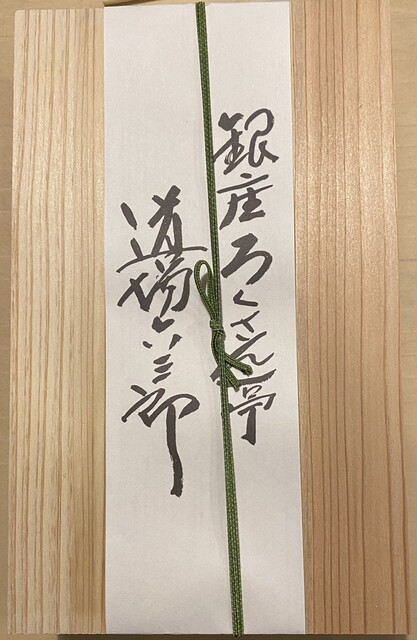 銀座ろくさん亭
道場六三郎